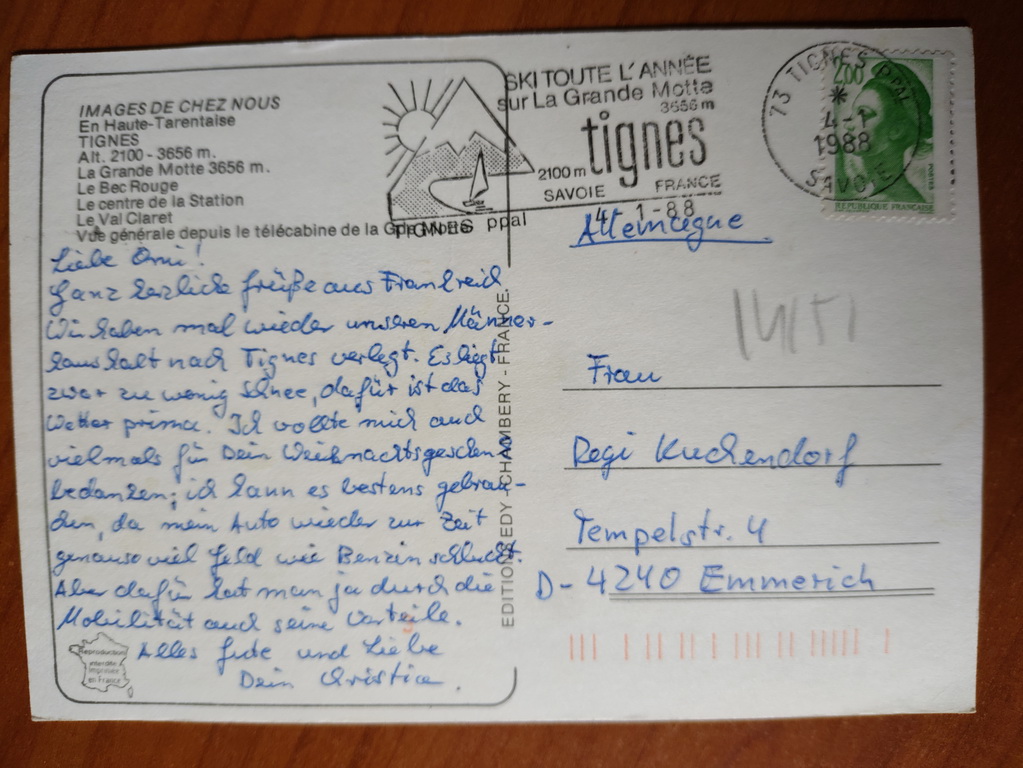 IMAGES DE CHEZ NOUS
En Haute-Tarentaise
TIGNES
Alt. 2100 - 3656 m.
La Grande Motte 3656 m.
Le Bec Rouge
Le centre de la Station
Le Val Claret
Vue générale depuis le télécabine de la Gde Motte
SKI TOUTE L'ANNÉE
sur La Grande Motte
3656 m
tignes
2100 m
SAVOIE FRANCE
TIGNES ppal 4-1-88
73 TIGNES PPAL
4-1
1988
SAVOIE
2,00
POSTES
REPUBLIQUE FRANCAISE
Liebe Omi!
Ganz herzliche Grüße aus Frankreich
Wir haben mal wieder unseren Männer-
haushalt nach Tignes verlegt. Es liegt
zwar zu wenig Schnee, dafür ist das
Wetter prima. Ich wollte mich auch
vielmals für Dein Weihnachtsgeschenk
bedanken; ich kann es bestens gebrau-
chen, da mein Auto wieder zur Zeit
genauso viel Geld wie Benzin schluckt.
Aber dafür hat man ja durch die
Mobilität auch seine Vorteile.
Alles Gute und Liebe
Dein Christian.
Reproduction
interdite
Imprimée
en France
EDITIONS EDY - CHAMBERY - FRANCE.
Allemagne
Frau
Regi Kuchendorf
Tempelstr. 4
D-4240 Emmerich